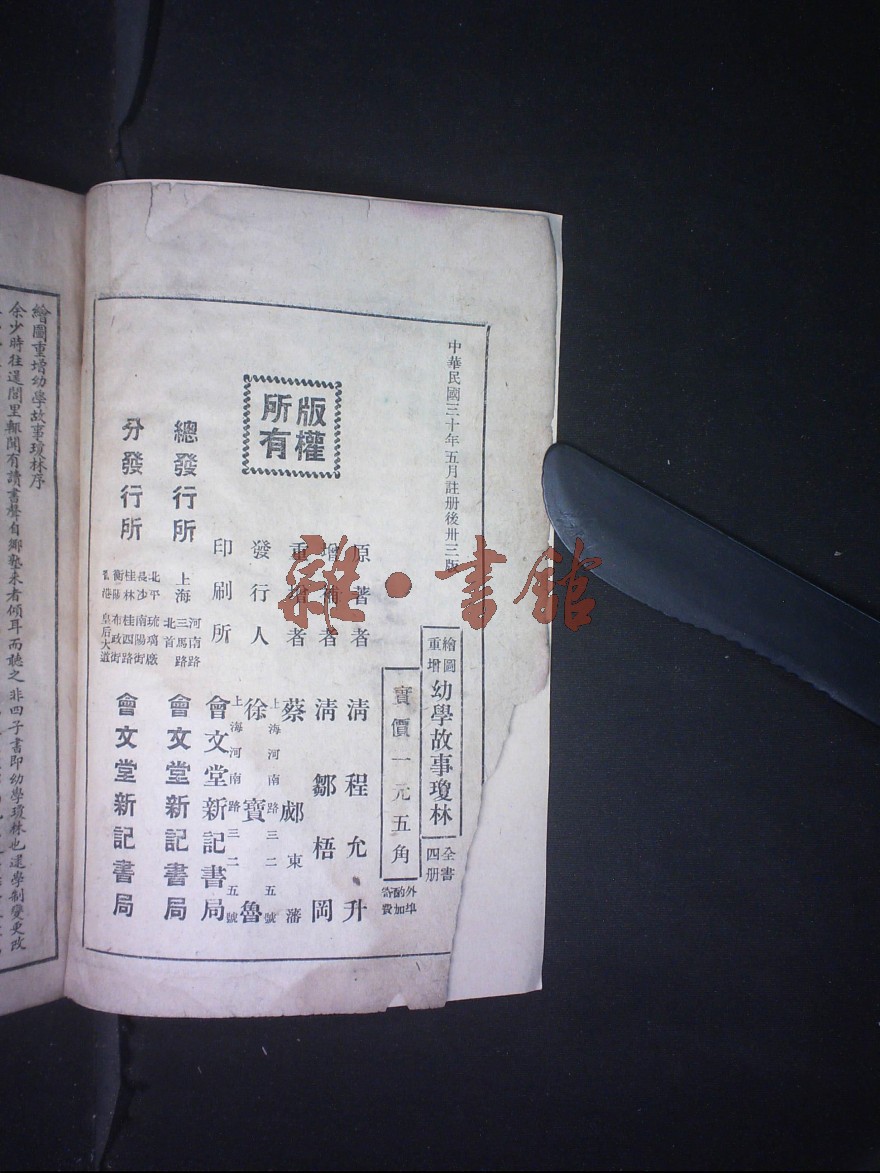 中華民國三十年五月註册後卅三版
繪圖重增幼學故事瓊林 全書四册
實價一元五角 外埠酌加寄費
原著者 清程允升
增補者 清鄒梧岡
重增者 蔡郕東藩
發行人 徐寶魯
上海河南路三二五號
印刷所 會文堂新記書局
上海河南路三二五號
總發行所 上海河南路三馬路北首 會文堂新記書局
分發行所 北平琉璃廠 長沙南陽街 桂林桂四路 衡陽布政街 香港皇后大道 會文堂新記書局
版權所有
雜·書館
繪圖重增幼學故事瓊林序
余少時往還閭里輒聞有讀書聲自鄉塾來者傾耳而聽之非四子書即幼學瓊林也逮學制變更改